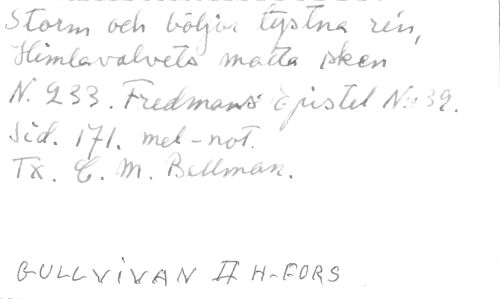 Storm och böljor tystna ren,
Himlavalvets matta sken
N. 233. Fredmans Epistel No: 39.
Sid. 171. mel-not.
Tx. C. M. Bellman.
GULLVIVAN II H-FORS